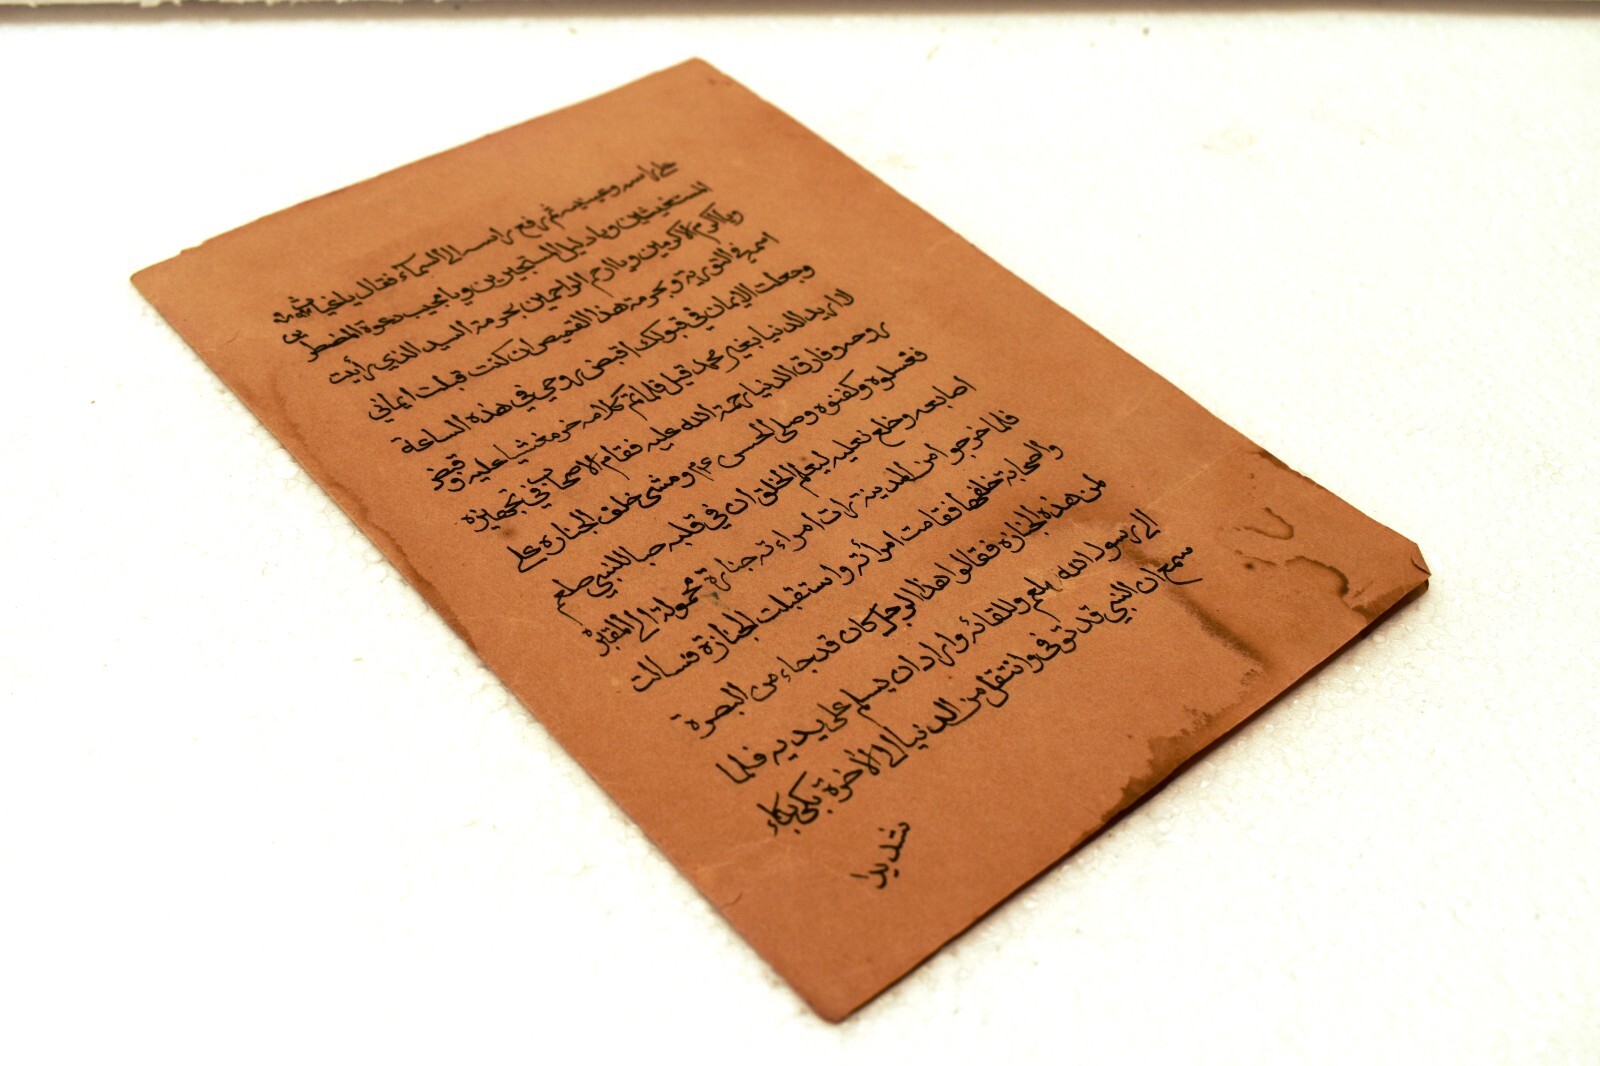 على راسه وعينيه ثم رفع راسه الى السمآء فقال يا غياث
المستغيثين ويا دليل المستجيرين ويا مجيب دعوة المضطرين
ويا اكرم الاكرمين ويا ارحم الراحمين بحرمة السيد الذي رأيت
اسمه في التورية وبحرمة هذا القميص ان كنت قبلت ايماني
وجعلت الايمان في قبولك اقبض روحي في هذه الساعة
لا اريد الدنيا بغير محمد قيل فلما تم كلامه خر مغشيا عليه وقبض
روحه وفارق الدنيا رحمة الله عليه فقام الاصحاب في تجهيزه
فغسلوه وكفنوه وصلى الحسن عم ومشى خلف الجنازه على
اصابعه وخلع نعليه ليعلم الخلق ان في قلبه حبا للنبي صلعم
فلما خرجوا من المدينة رات امراءته جنازة محمولة الى المقبرة
واصحابه خلفها فقامت امرأته واستقبلت الجنازة فسالت
لمن هذه الجنازه فقالوا هذا الرجل كان قد جاء من البصرة
الى رسول الله صلعم وللقائه واراد ان يسلم على يديه فلما
سمع ان النبي قد توفى وانتقل من الدنيا الى الأخرة بكى بكاء
شديدا